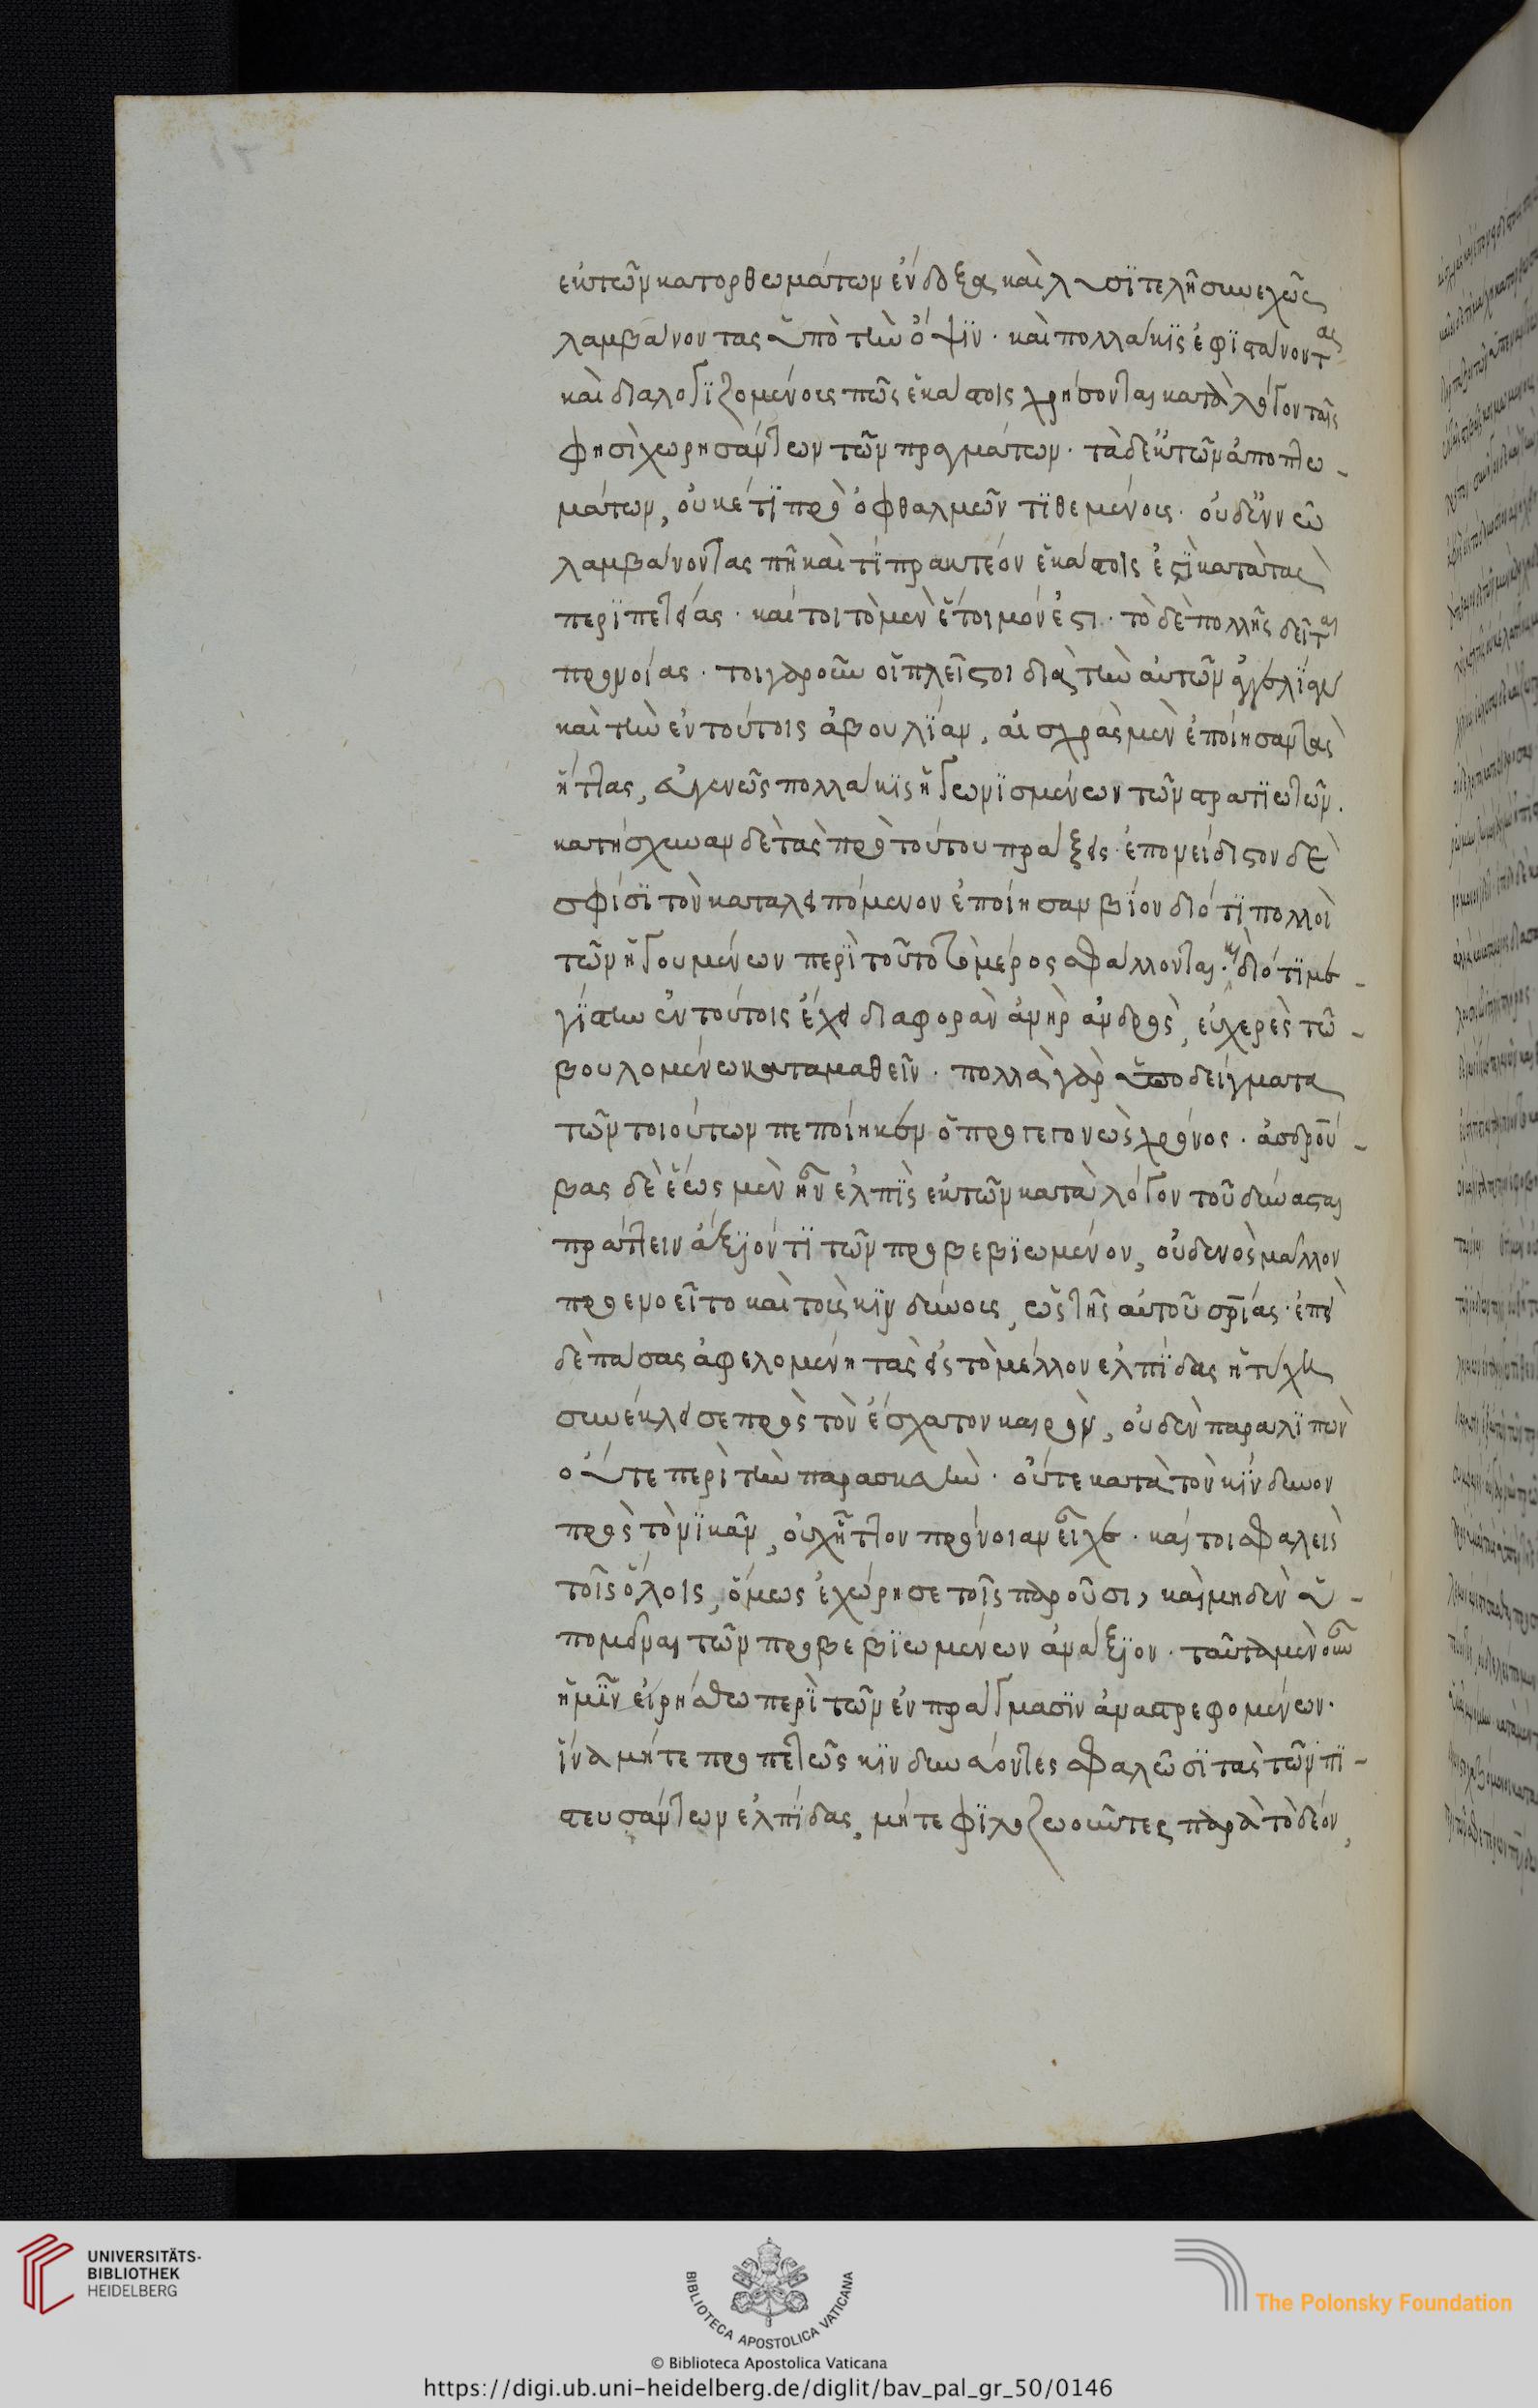 ἐκ τῶν κατορθωμάτων ἔνδοξα καὶ λυσιτελῆ συνεχῶς
λαμβάνοντας ὑπὸ τὴν ὄψιν · καὶ πολλάκις ἐφιστάνοντας
καὶ διαλογιζομένους πῶς ἑκάστοις χρήσονται κατὰ λόγον ταῖς
φησὶ χωρησάντων τῶν πραγμάτων · τὰ δ' ἐκ τῶν ἀποπτω-
μάτων, οὐκέτι πρὸ ὀφθαλμῶν τιθεμένους · οὐδ' ἐν νῷ
λαμβάνοντας πῆ καὶ τί πρακτέον ἑκάστοις ἐστὶ κατὰ τὰς
περιπετείας · καίτοι τὸ μὲν ἕτοιμόν ἐστι · τὸ δὲ πολλῆς δεῖται
προνοίας · τοιγαροῦν οἱ πλεῖστοι διὰ τὴν αὐτῶν
καὶ τὴν ἐν τούτοις ἀβουλίαν, αἰσχρὰς μὲν ἐποίησαν τὰς
ἥττας, εὐγενῶς πολλάκις ἠγωνισμένων τῶν στρατιωτῶν ·
κατήσχυναν δὲ τὰς πρὸ τούτου πράξεις · ἐπονείδιστον δὲ
σφίσι τὸν καταλειπόμενον ἐποίησαν βίον διότι πολλοὶ
τῶν ἡγουμένων περὶ τοῦτο τὸ μέρος σφάλλονται · καὶ διότι με-
γίστην ἐν τούτοις ἔχει διαφορὰν ἀνὴρ ἀνδρὸς, εὐχερὲς τῷ
βουλομένῳ καταμαθεῖν · πολλὰ γὰρ ὑποδείγματα
τῶν τοιούτων πεποίηκεν ὁ προγεγονὼς χρόνος · ἀσδρού-
βας δὲ ἕως μὲν ἦν ἐλπὶς ἐκ τῶν κατὰ λόγον τοῦ δύνασθαι
πράττειν ἄξιόν τι τῶν προβεβιωμένον, οὐδενὸς μᾶλλον
προενοεῖτο καὶ τοῖς κινδύνοις, ὡς τῆς αὐτοῦ σρίας · ἐπεὶ
δὲ πάσας ἀφελομένη τὰς εἰς τὸ μέλλον ἐλπίδας ἡ τύχη
συνέκλεισε πρὸς τὸν ἔσχατον καιρὸν, οὐδὲν παραλιπὼν
οὔτε περὶ τὴν παρασκευὴν · οὔτε κατὰ τὸν κίνδυνον
πρὸς τὸ νικᾶν, οὐχ ἧττον πρόνοιαν εἶχε · καίτοι σφαλεὶς
τοῖς ὅλοις, ὅμως ἐχώρησε τοῖς παροῦσι, καὶ μηδὲν ὑ-
πομεῖναι τῶν προβεβιωμένων ἀνάξιον · ταῦτα μὲν οὖν
ἡμῖν εἰρήσθω περὶ τῶν ἐν πράγμασιν ἀναστρεφομένων ·
ἵνα μήτε προπετῶς κινδυνεύοντες σφαλῶσι τὰς τῶν πι-
στευσάντων ἐλπίδας, μήτε φιλοζωοῦντες παρὰ τὸ δέον,
UNIVERSITÄTS-
BIBLIOTHEK
HEIDELBERG
BIBLIOTECA APOSTOLICA VATICANA
The Polonsky Foundation
© Biblioteca Apostolica Vaticana
https://digi.ub.uni-heidelberg.de/diglit/bav_pal_gr_50/0146